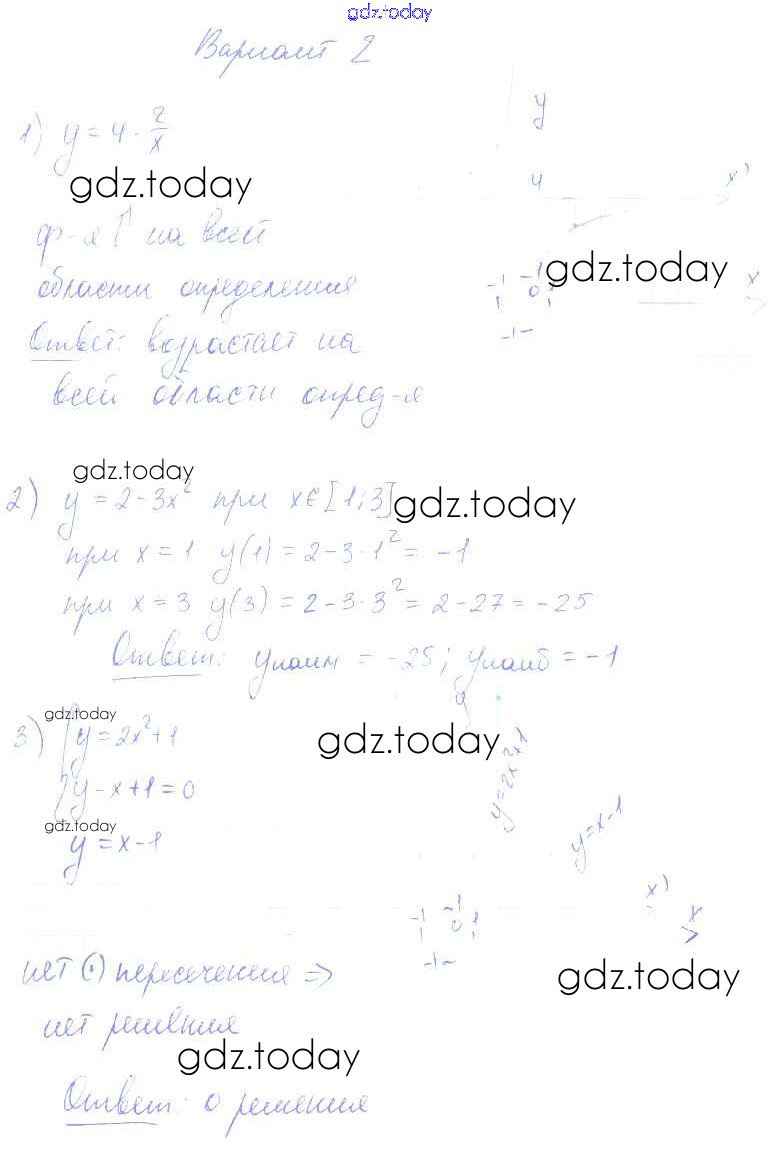 gdz.today
Вариант 2
1) y = 4 - 2/x
gdz.today
ф-я ↑ на всей
области определения
gdz.today
Ответ: возрастает на
всей области опред-я
y
4
x'
-1 -1 0 1
x
-1
gdz.today
2) y = 2 - 3x² при x ∈ [1; 3]
gdz.today
при x = 1 y(1) = 2 - 3 · 1² = -1
при x = 3 y(3) = 2 - 3 · 3² = 2 - 27 = -25
Ответ: yнаим = -25; yнаиб = -1
gdz.today
3) { y = 2x² + 1
y - x + 1 = 0
gdz.today
gdz.today
y = x - 1
y
y = x - 1
x'
-1 -1 0 1
x
-1
нет (·) пересечения ⇒
gdz.today
нет решения
gdz.today
Ответ: 0 решения